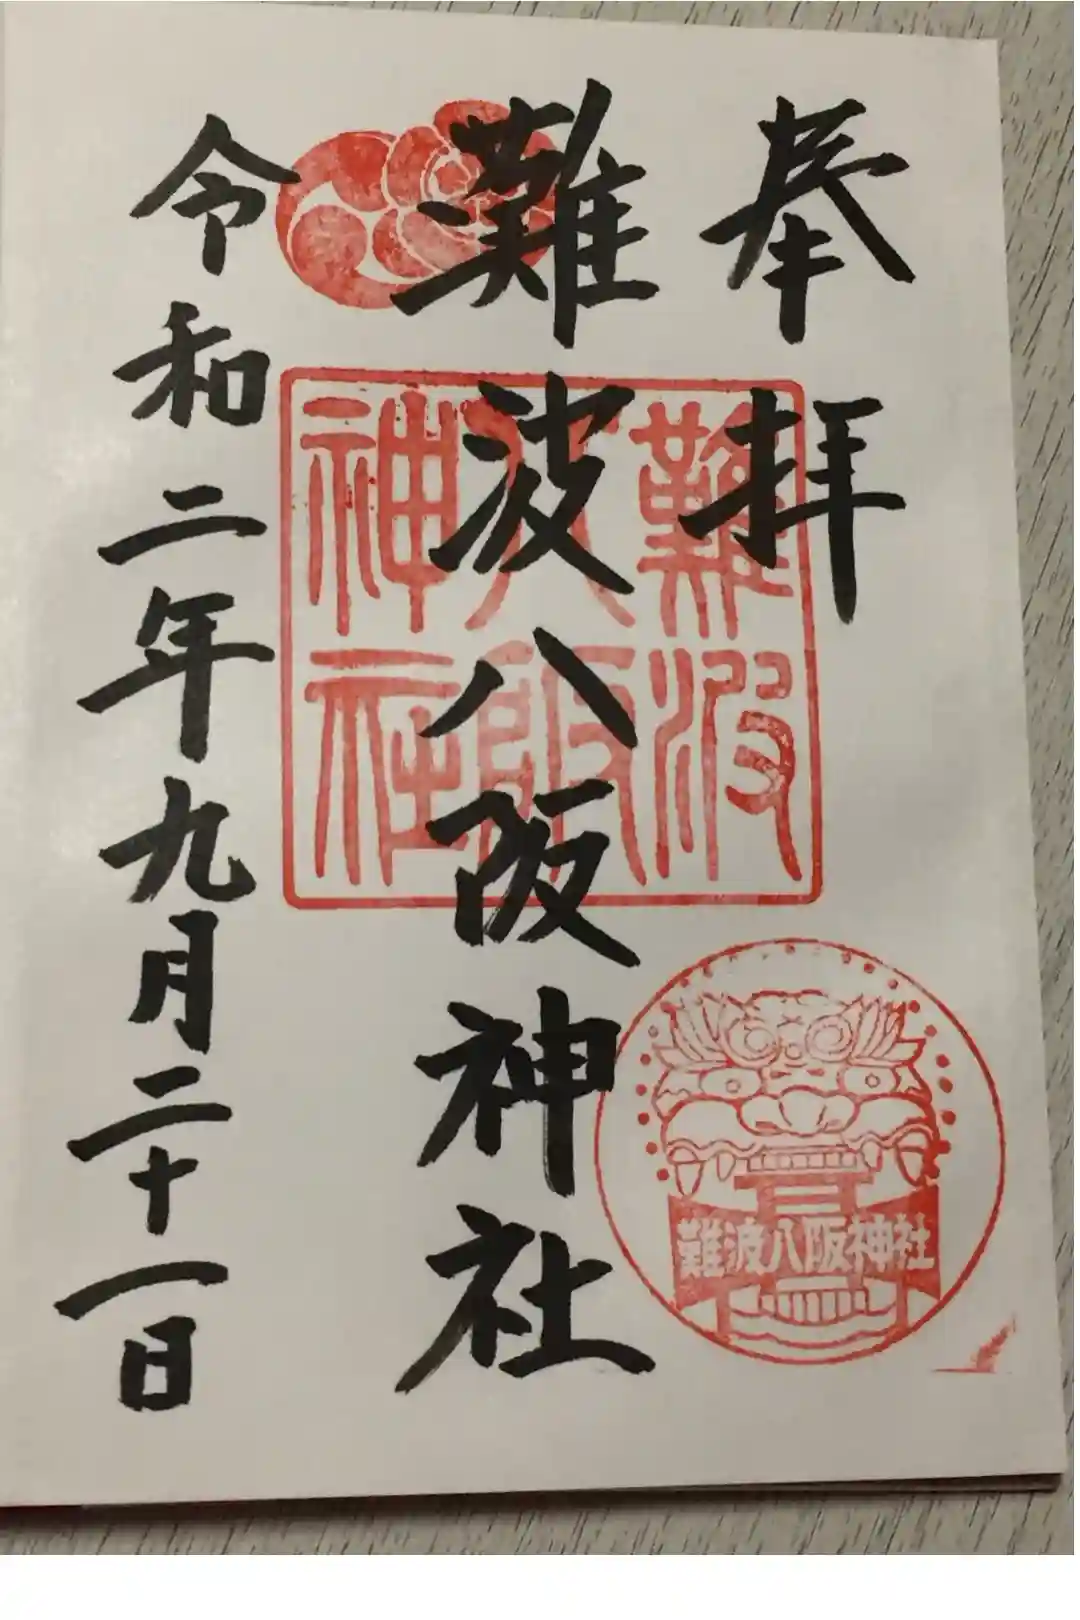 奉拝
難波八阪神社
令和二年九月二十一日
難波
八阪
神社
難波八阪神社